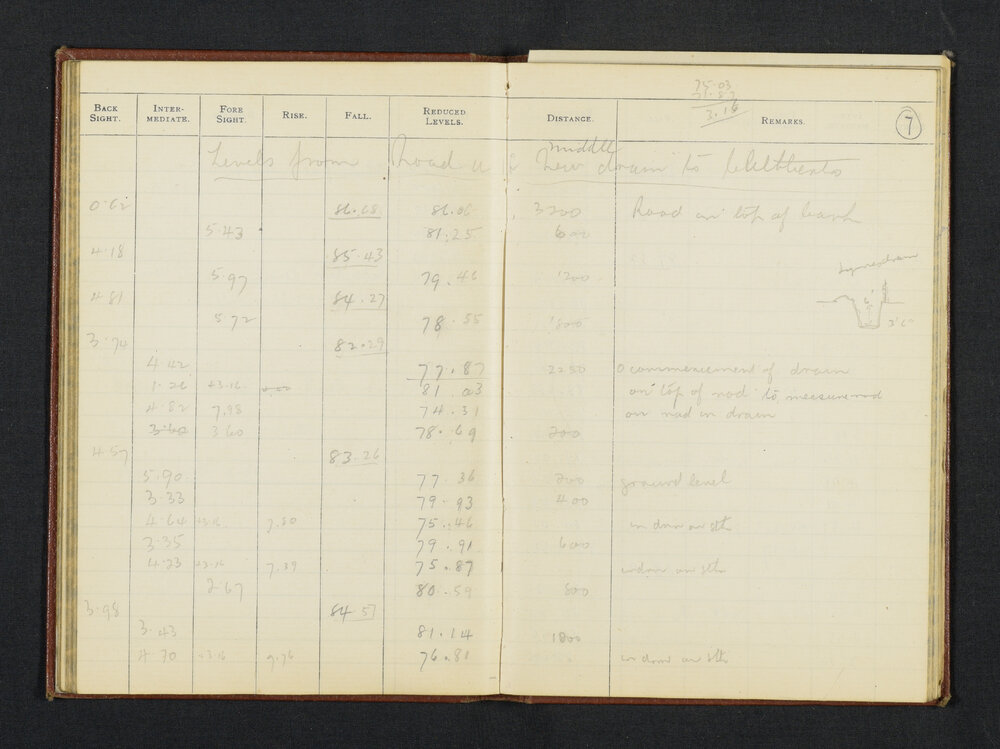 75.03
71.87
3.16
BACK SIGHT. INTER-MEDIATE. FORE SIGHT. RISE. FALL. REDUCED LEVELS. DISTANCE. REMARKS. 7
middle
Levels from Road new drain to
0.62 86.68 86.06 3200 Road on top of bank
5.43 81.25 600
4.18 85.43
5.97 79.46 1200
4.81 84.27
5.72 78.55 1800
3.74 82.29
4.42 77.87 2250 0 commencement of drain
1.26 +3.16 81.03 on top of rod to measure rod
4.82 7.98 74.31 on rod in drain
3.60 3.60 78.69 200
4.57 83.26
5.90 77.36 200 ground level
3.33 79.93 400
4.64 +3.16 7.80 75.46 in drain on sth
3.35 79.91 600
4.23 +3.16 7.39 75.87 in drain on sth
2.67 80.59 800
3.98 84.57
3.43 81.14 1000
4.70 +3.16 76.81 in drain on sth
3'6"